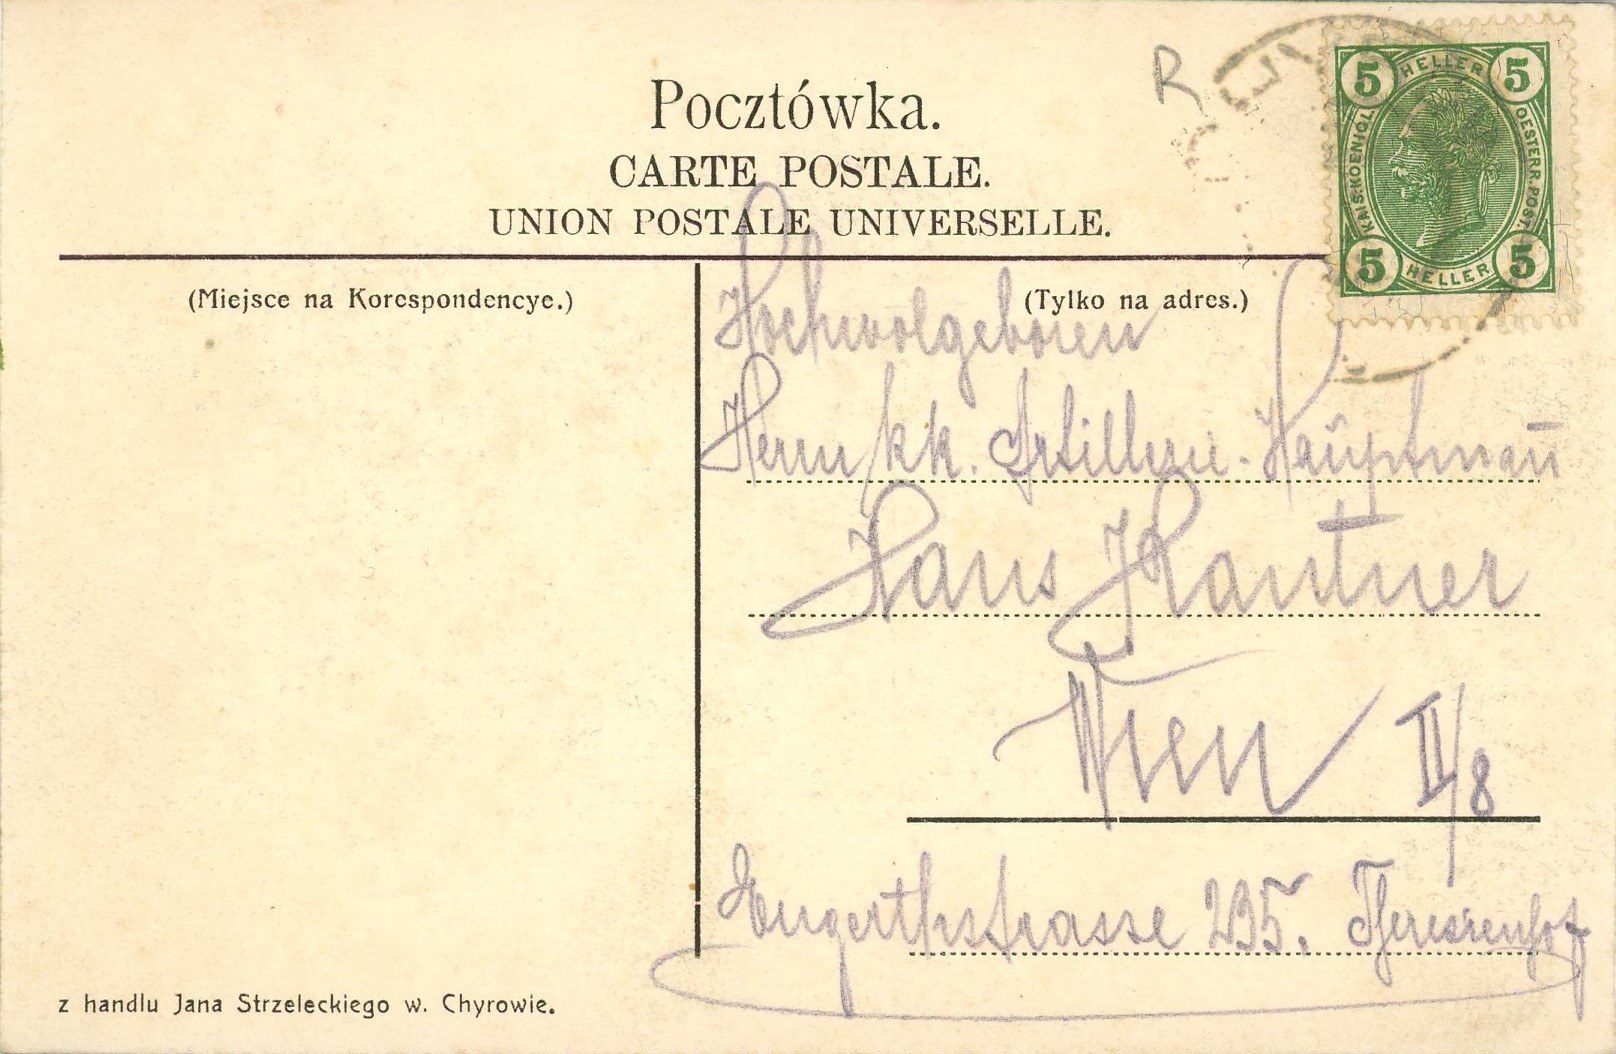 R
Pocztówka.
CARTE POSTALE.
UNION POSTALE UNIVERSELLE.
5 HELLER 5
KAIS. KOENIGL. OESTERR. POST.
5 HELLER 5
(Miejsce na Korespondencye.)
(Tylko na adres.)
Hochwolgeboren
Herrn kk. Artillerie-Hauptmañ
Hans Kantner
Wien II/8
Engerthstrasse 235. Theresienhof
z handlu Jana Strzeleckiego w. Chyrowie.